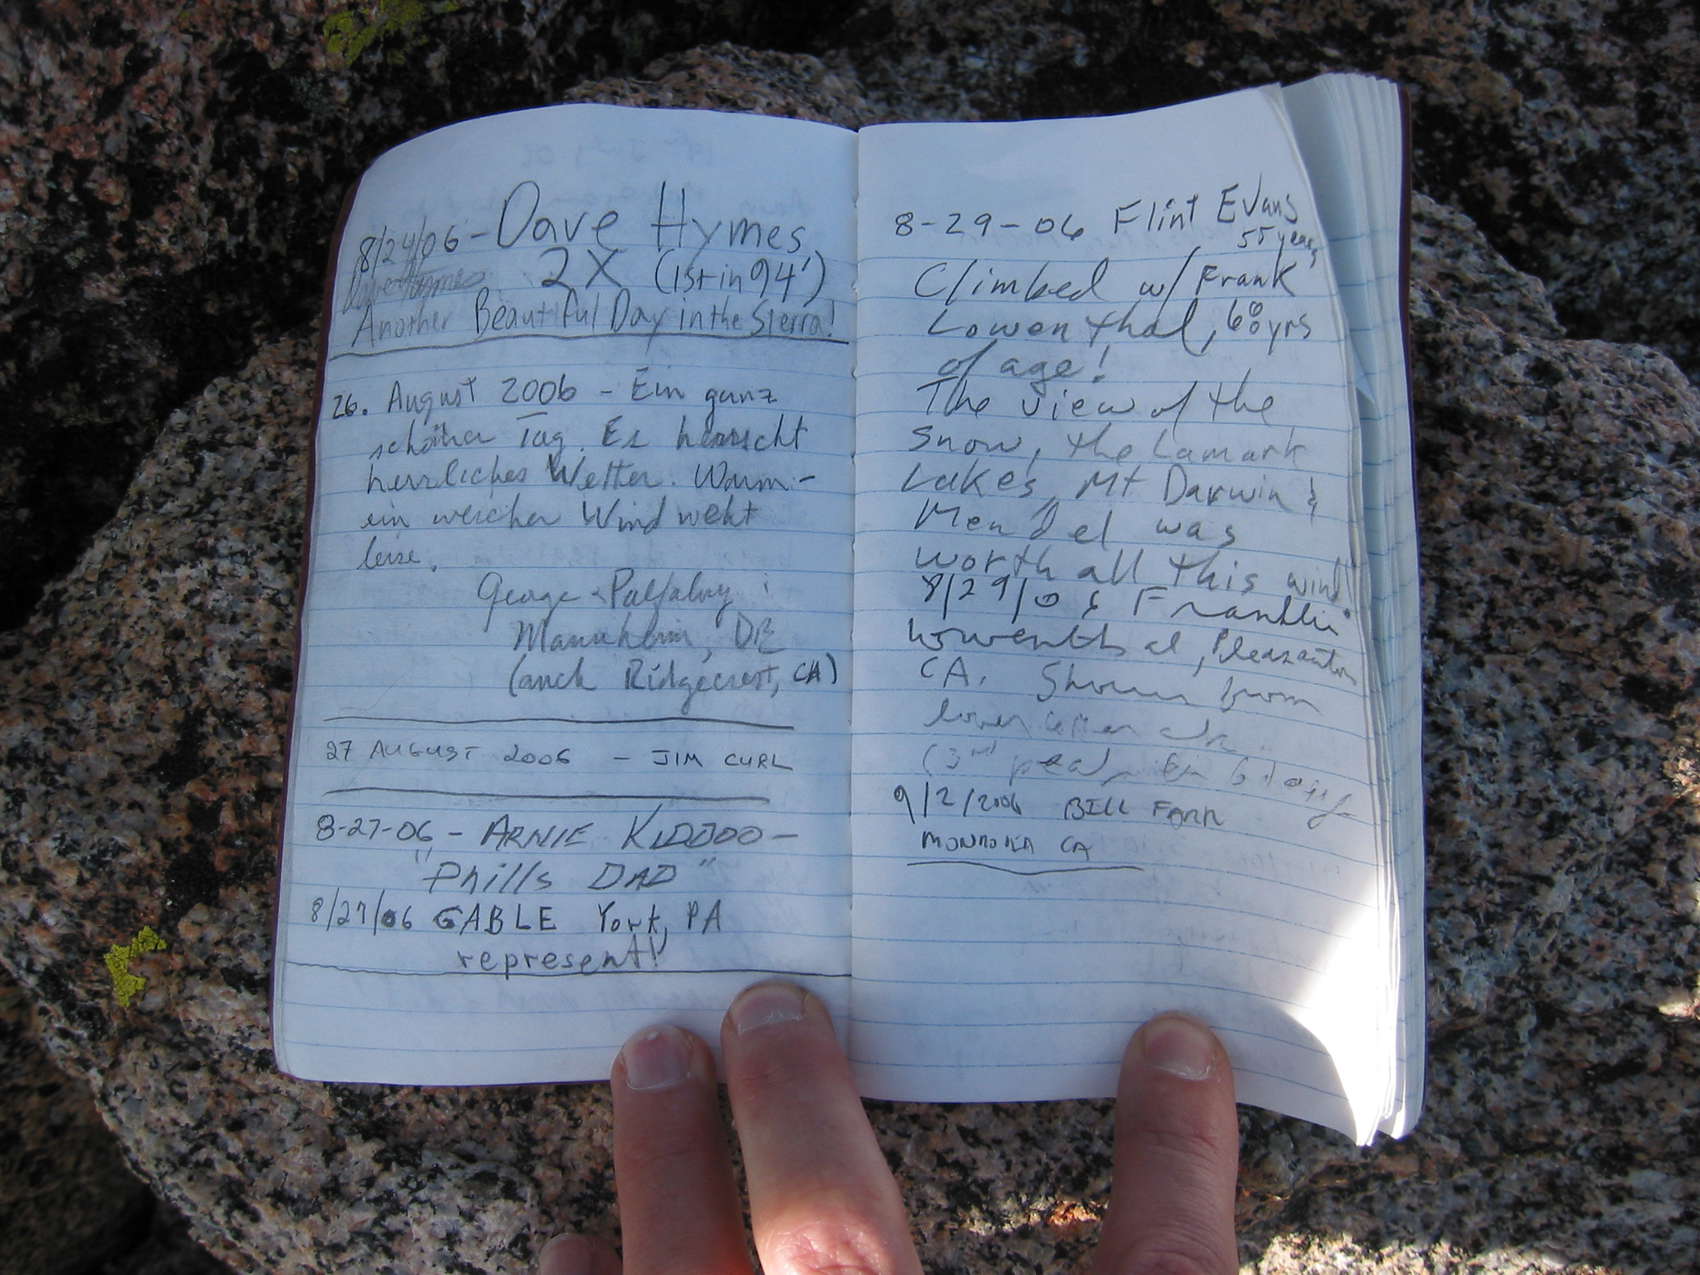 8/24/06 - Dave Hymes
2X (1st in 94')
Another Beautiful Day in the Sierra!
26. August 2006 - Ein ganz
schöner Tag. Es herrscht
herrliches Wetter. Warm -
ein weicher Wind weht
leise.
George
Mannheim, DE
(auch Ridgecrest, CA)
27 AUGUST 2006 - JIM CURL
8-27-06 - ARNIE
"Phills DAD"
8/27/06 GABLE York, PA
represent!
8-29-06 Flint Evans
55 years
Climbed w/ Frank
Lowenthal, 60 yrs
of age!
The view of the
snow, the Lamark
Lakes, Mt Darwin &
Mendel was
worth all this wind!
8/29/06 Franklin
Lowenthal, Pleasanton
CA. from
lower
(3rd
9/2/2006 BILL
CA